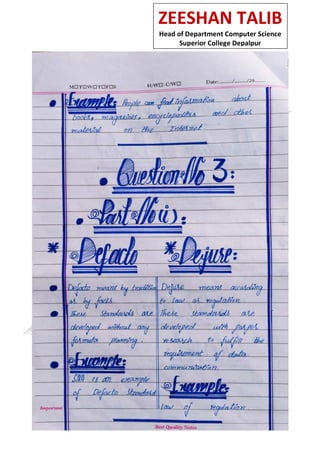 ZEESHAN TALIB
Head of Department Computer Science
Superior College Depalpur
MOTOWOTOFOS H/WD-C/WD Date:____/____/20____
Example: People can find information about
books, magazines, encyclopedias and other
material on the Internet
Question No 3:
Part No (i):
Defacto
Dejure:
Defacto means by tradition
or by facts.
These Standards are
developed without any
formata planning
Example:
SNA is an example
of Defacto Standard
Dejure means according
to law or regulation
These standards are
developed with proper
research to fulfill the
requirement of data
communication
Example:
law of regulation
Important
Best Quality Notes